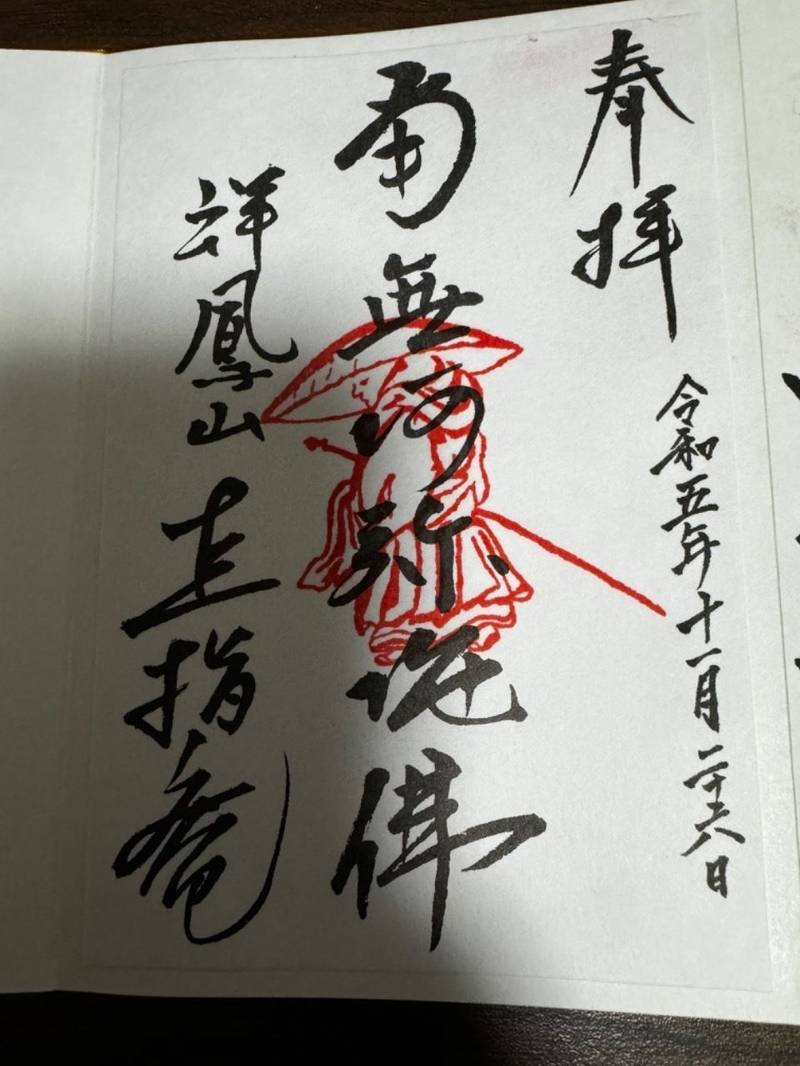 奉拝
令和五年十一月二十六日
南無阿弥陀佛
祥鳳山 直指庵